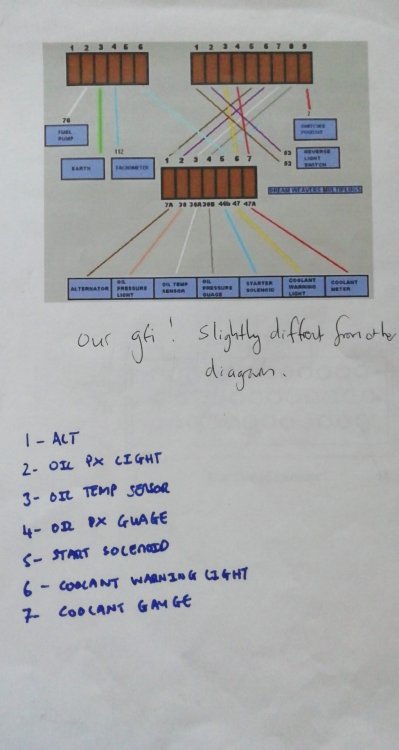 1 2 3 4 5 6
1 2 3 4 5 6 7 8 9
76
FUEL
PUMP
EARTH
112
TACHOMETER
SWITCHED
53
53
REVERSE
LIGHT
SWITCH
1 2 3 4 5 6 7
DREAM WEAVERS MULTIPLUGS
7A 38 38A 39B 46b 47 47A
ALTERNATOR
OIL
PRESSURE
LIGHT
OIL TEMP
SENSOR
OIL
PRESSURE
GUAGE
STARTER
SOLENOID
COOLANT
WARNING
LIGHT
COOLANT
METER
Our gti! Slightly diffent from other
diagram.
1 - ALT
2- OIL PX LIGHT
3- OIL TEMP SENSOR
4- OIL PX GUAGE
5- START SOLENOID
6 - COOLANT WARNING LIGHT
7- COOLANT GAUGE